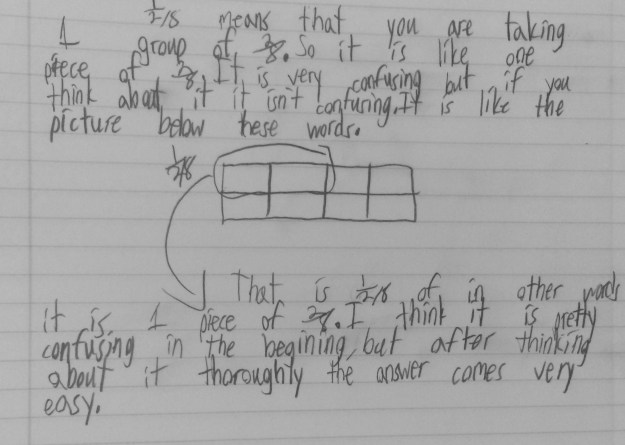 means that you are taking
1 group of So it is like one
piece of It is very confusing but if you
think about it it isn't confusing. It is like the
picture below these words.
That is of in other words
it is 1 piece of I think it is pretty
confusing in the begining, but after thinking
about it thoroughly the answer comes very
easy.